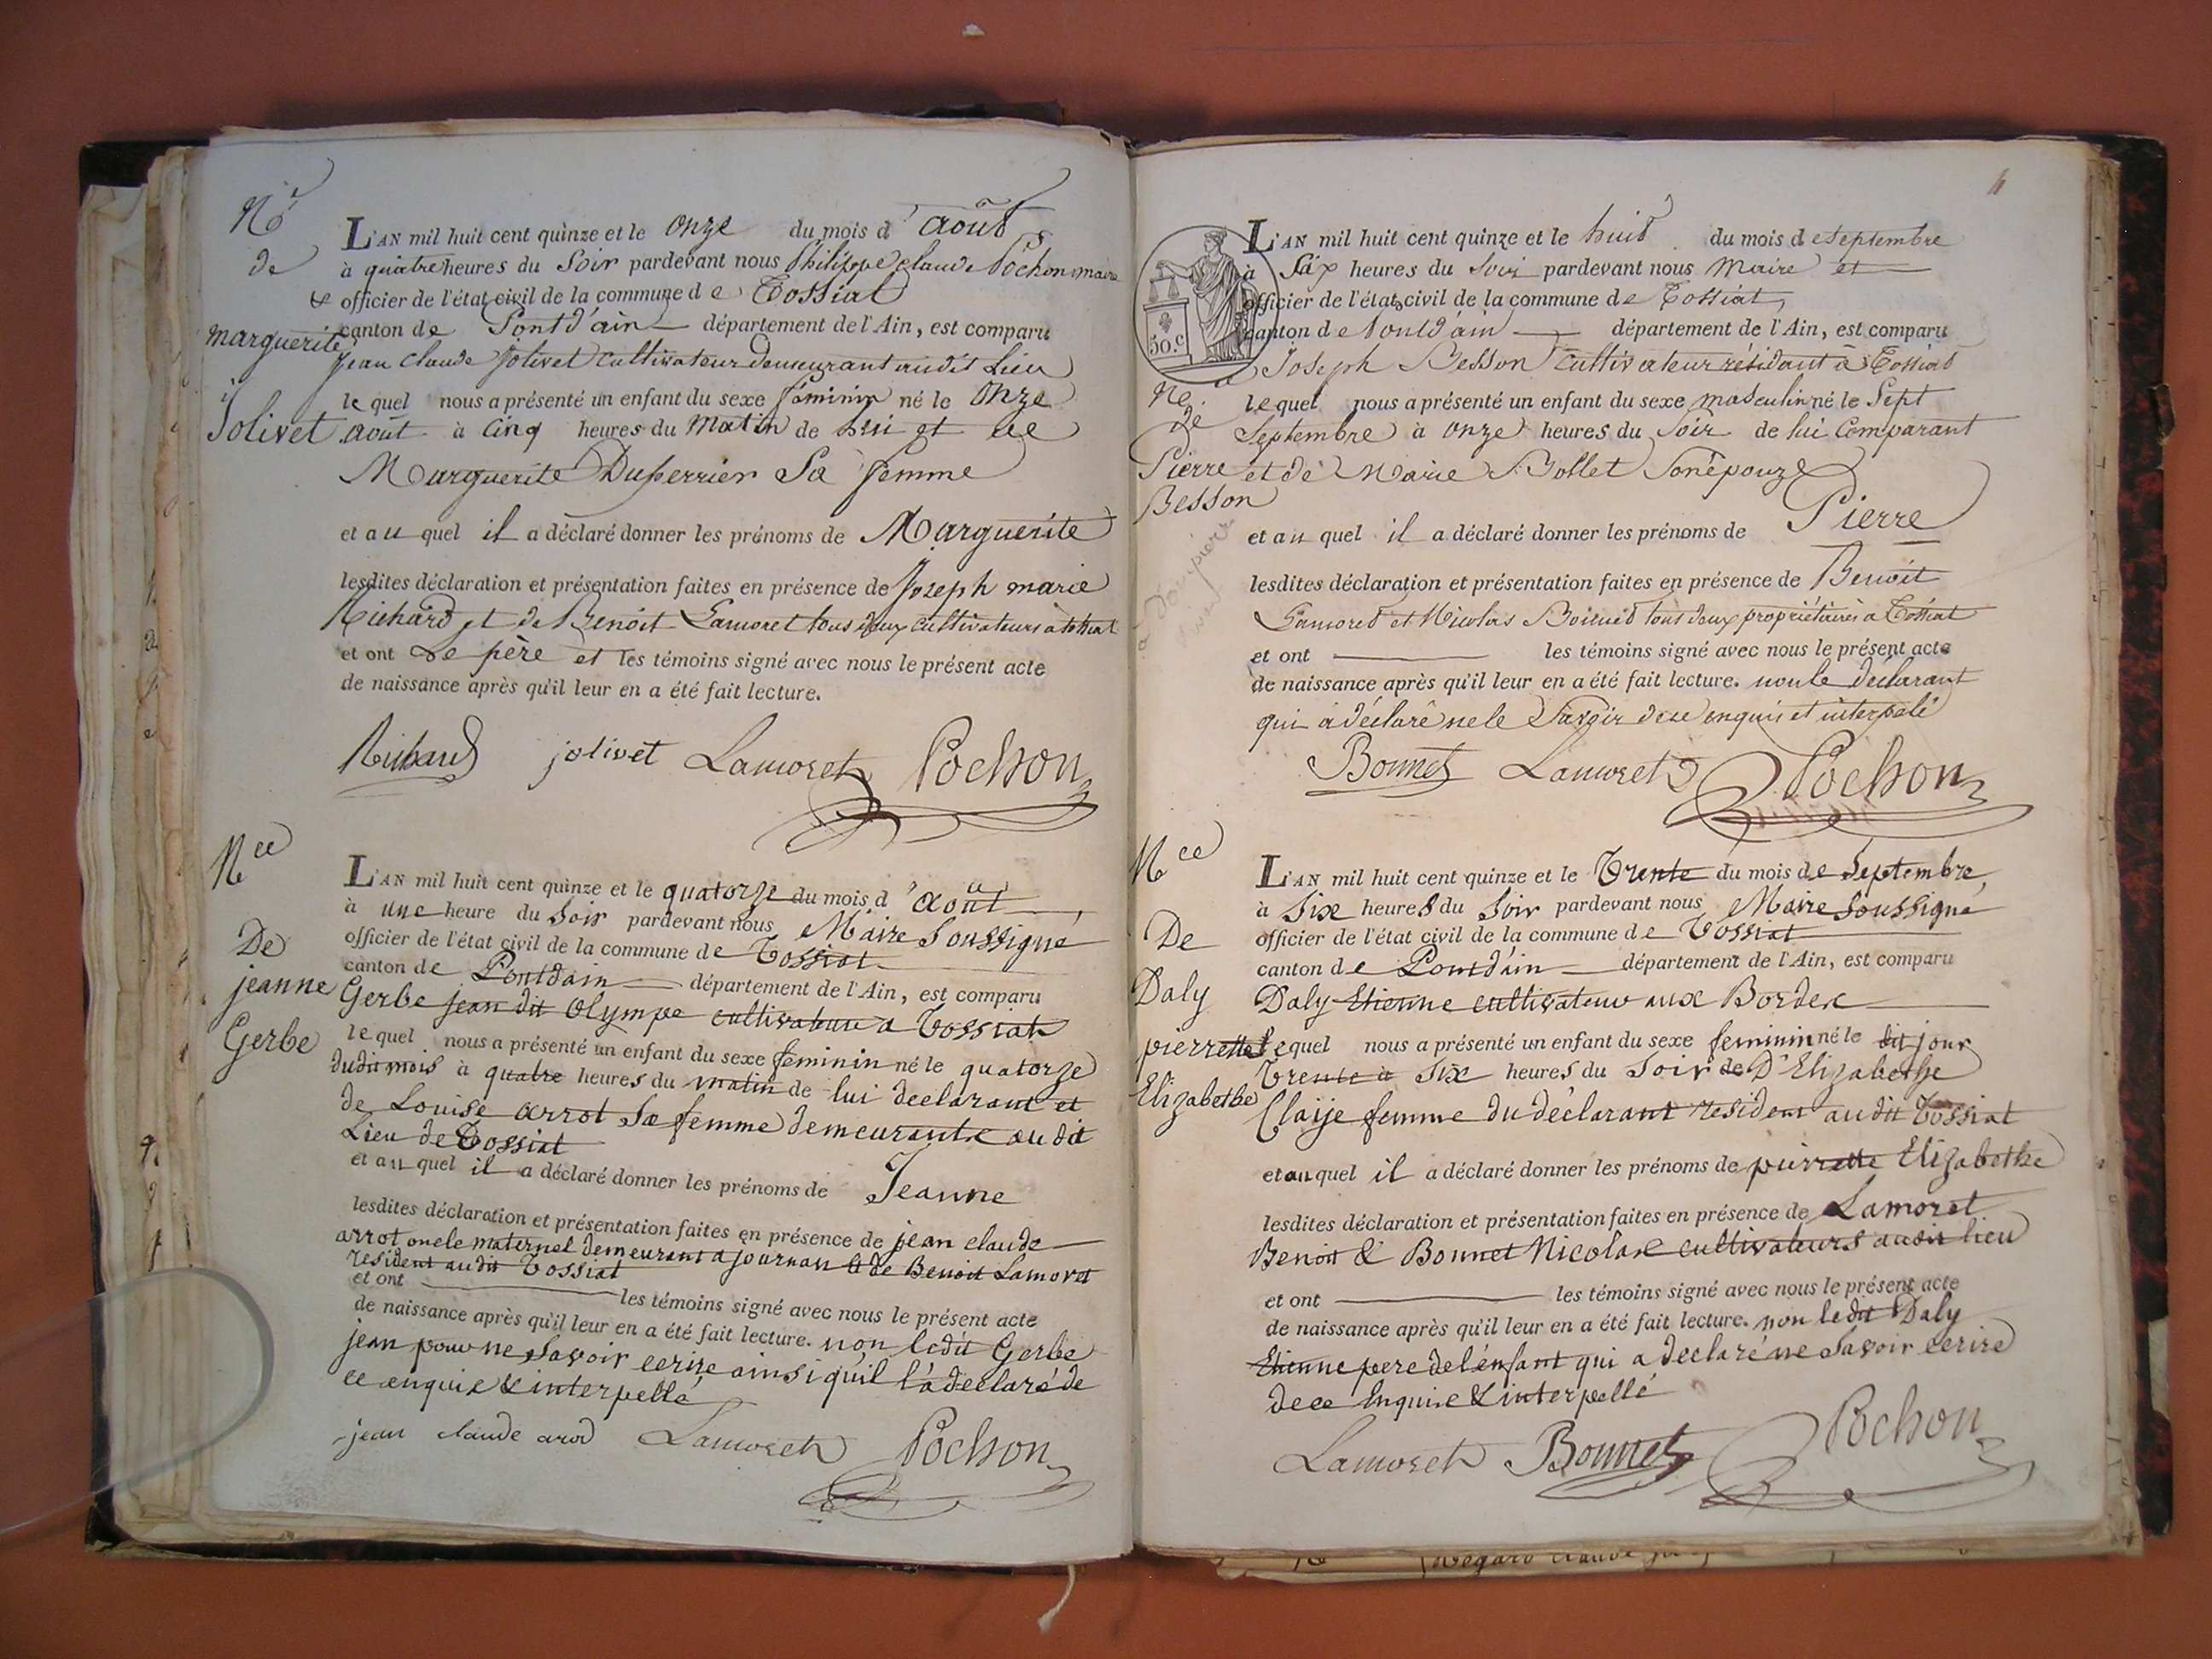 Né
de
marguerite
Jolivet
L'AN mil huit cent quinze et le onze du mois d'août
à quatre heures du Soir pardevant nous Philippe claude Pochon maire
& officier de l'état civil de la commune de Tossiat
canton de Pontd'ain département de l'Ain, est comparu
Jean claude Jolivet cultivateur demeurant audit Lieu
lequel nous a présenté un enfant du sexe féminin né le onze
août à cinq heures du Matin de lui et de
Marguerite Duperrier Sa femme
et au quel il a déclaré donner les prénoms de Marguerite
lesdites déclaration et présentation faites en présence de Joseph marie
Richard et de Benoit Lamoret tous deux cultivateurs a tossiat
et ont le père et les témoins signé avec nous le présent acte
de naissance après qu'il leur en a été fait lecture.
Richard jolivet Lamoret Pochon
Nce
De
jeanne
Gerbe
L'AN mil huit cent quinze et le quatorze du mois d'août
à une heure du Soir pardevant nous Maire Soussigné
officier de l'état civil de la commune de Tossiat
canton de Pontdain département de l'Ain, est comparu
Gerbe jean dit Olympe cultivateur a Tossiat
lequel nous a présenté un enfant du sexe feminin né le quatorze
dudit mois à quatre heures du matin de lui declarant et
de Louise arrot Sa femme demeurante au dit
Lieu de Tossiat
et au quel il a déclaré donner les prénoms de Jeanne
lesdites déclaration et présentation faites en présence de jean claude
arrot oncle maternel demeurant a journan & de Benoit Lamoret
resident au dit Tossiat
et ont les témoins signé avec nous le présent acte
de naissance après qu'il leur en a été fait lecture. non ledit Gerbe
jean pour ne Savoir ecrire ainsi qu'il l'a declaré de
ce enquis & interpellé
jean claude arod Lamoret Pochon
50.c
Nce
de
Pierre
Besson
L'AN mil huit cent quinze et le huit du mois de Septembre
à Six heures du Soir pardevant nous Maire et
officier de l'état civil de la commune de Tossiat,
canton de Pontd'ain département de l'Ain, est comparu
Joseph Besson cultivateur résidant à Tossiat
lequel nous a présenté un enfant du sexe masculin né le Sept
Septembre à onze heures du Soir de lui Comparant
et de Marie Bollet Son épouze
et au quel il a déclaré donner les prénoms de Pierre
lesdites déclaration et présentation faites en présence de Benoit
Lamoret et Nicolas Bonnet tous deux propriétaires a Tossiat
et ont les témoins signé avec nous le présent acte
de naissance après qu'il leur en a été fait lecture. non le déclarant
qui a déclaré ne le Savoir de ce enquis et interpelé
Bonnet Lamoret Pochon
Nce
De
Daly
pierrette
Elizabethe
L'AN mil huit cent quinze et le Trente du mois de Septembre
à Six heures du Soir pardevant nous Maire Soussigné
officier de l'état civil de la commune de Tossiat
canton de Pontd'ain département de l'Ain, est comparu
Daly Etienne cultivateur aux Bordes
lequel nous a présenté un enfant du sexe feminin né le dit jour
Trente à Six heures du Soir de D'Elizabethe
Claije femme du déclarant resident au dit Tossiat
et au quel il a déclaré donner les prénoms de pierrette Elizabethe
lesdites déclaration et présentation faites en présence de Lamoret
Benoit & Bonnet Nicolas cultivateurs audit lieu
et ont les témoins signé avec nous le présent acte
de naissance après qu'il leur en a été fait lecture. non ledit Daly
Etienne pere de l'enfant qui a declaré ne Savoir ecrire
de ce Enquis & interpellé
Lamoret Bonnet Pochon